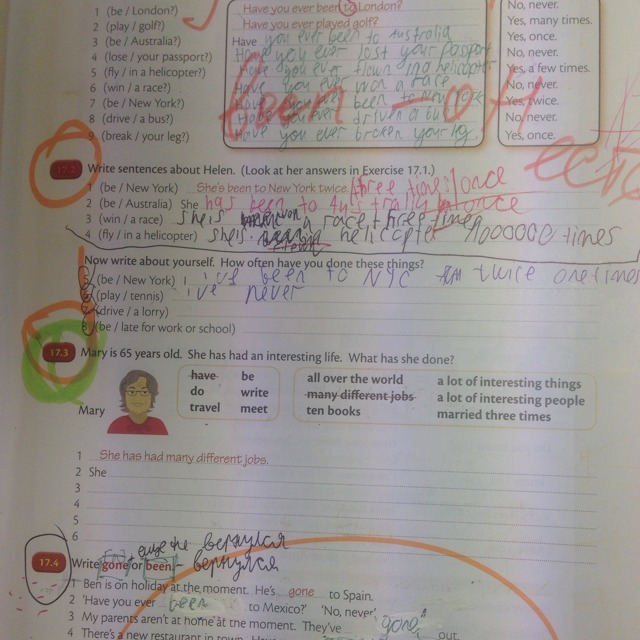 1 (be / London?) Have you ever been to London? No, never.
2 (play / golf?) Have you ever played golf? Yes, many times.
3 (be / Australia?) Have you ever been to Australia Yes, once.
4 (lose / your passport?) Have you ever lost your passport No, never.
5 (fly / in a helicopter?) Have you ever flown in a helicopter Yes, a few times.
6 (win / a race?) Have you ever won a race No, never.
7 (be / New York?) Have you ever been to New York Yes, twice.
8 (drive / a bus?) Have you ever driven a bus No, never.
9 (break / your leg?) Have you ever broken your leg Yes, once.
been
17.2 Write sentences about Helen. (Look at her answers in Exercise 17.1.)
1 (be / New York) She's been to New York twice. three time once
2 (be / Australia) She has been to Australia once
3 (win / a race) She is won a race three times
4 (fly / in a helicopter) She is helicopter 1000000 times
Now write about yourself. How often have you done these things?
5 (be / New York) I i've been to NYC twice one times
6 (play / tennis) i've never
7 (drive / a lorry)
8 (be / late for work or school)
17.3 Mary is 65 years old. She has had an interesting life. What has she done?
have be
do write
travel meet
all over the world a lot of interesting things
many different jobs a lot of interesting people
ten books married three times
Mary
1 She has had many different jobs.
2 She
3
4
5
6
еще не вернулся
17.4 Write gone or been. - вернулся
1 Ben is on holiday at the moment. He's gone to Spain.
2 'Have you ever been to Mexico?' 'No, never.'
3 My parents aren't at home at the moment. They've gone out.
4 There's a new restaurant in town.